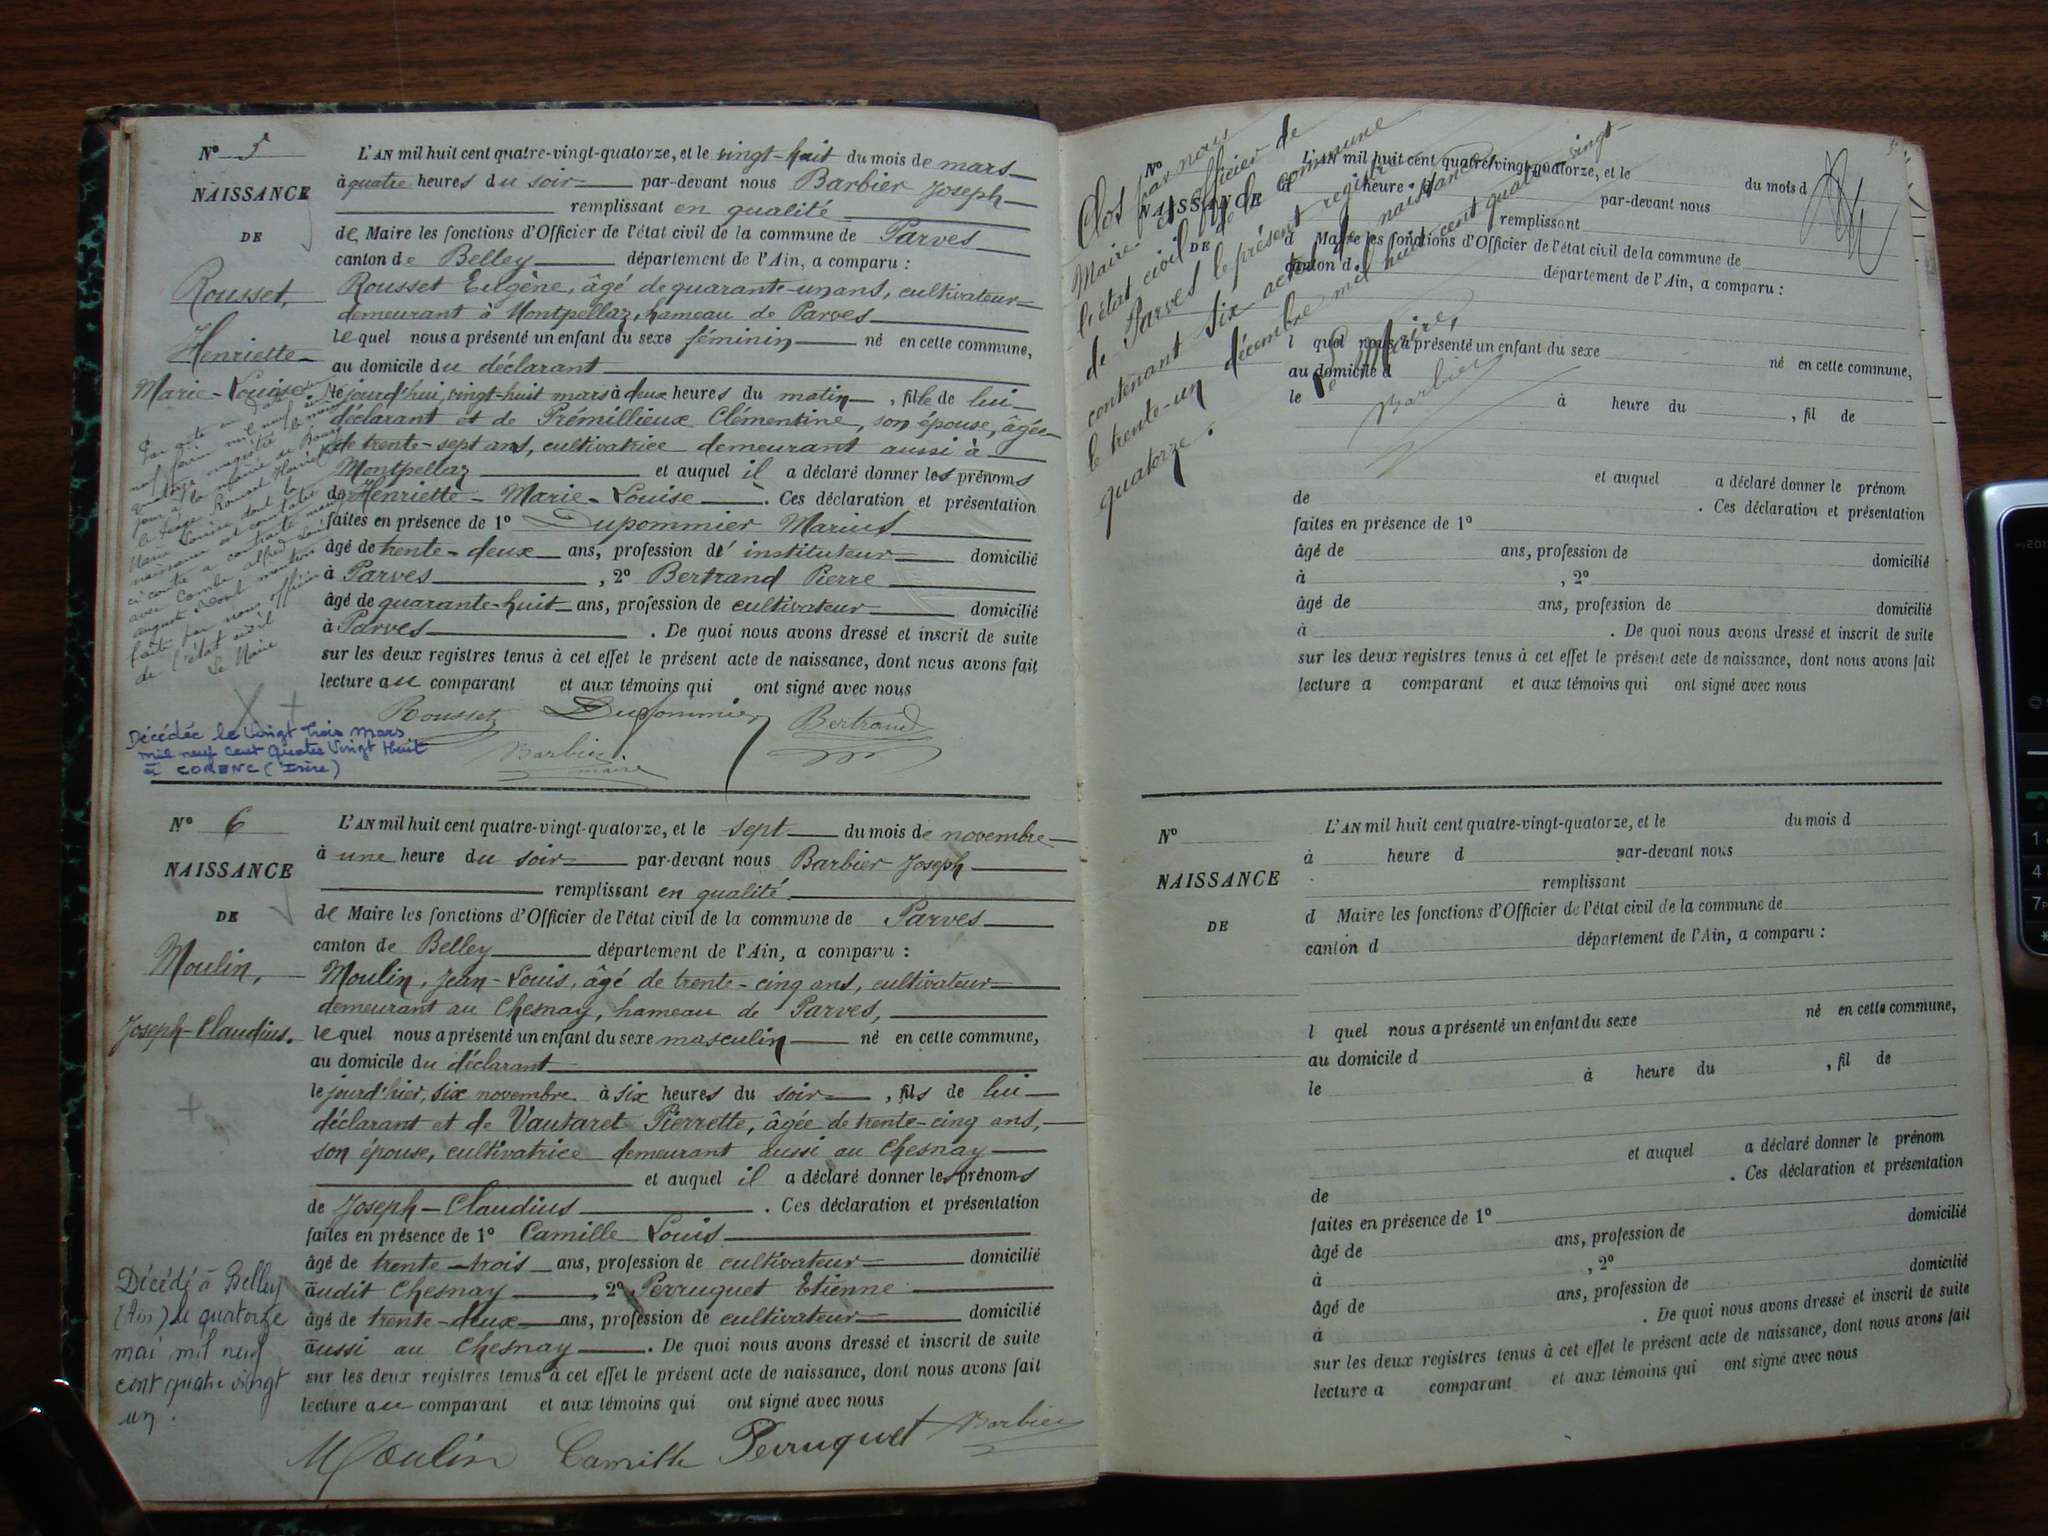 N° 5
NAISSANCE
DE
Rousset,
Henriette
Marie-Louise
L'AN mil huit cent quatre-vingt-quatorze, et le vingt-huit du mois de mars
à quatre heures du soir par-devant nous Barbier Joseph
remplissant en qualité
de Maire les fonctions d'Officier de l'état civil de la commune de Parves
canton de Belley département de l'Ain, a comparu :
Rousset Eugène, âgé de quarante-un ans, cultivateur
demeurant à Montpellaz, hameau de Parves
lequel nous a présenté un enfant du sexe féminin né en cette commune,
au domicile du déclarant
le jourd'hui, vingt-huit mars à deux heures du matin, fille de lui
déclarant et de Prémillieux Clémentine, son épouse, âgée
de trente-sept ans, cultivatrice demeurant aussi à
Montpellaz et auquel il a déclaré donner les prénoms
de Henriette-Marie-Louise. Ces déclaration et présentation
faites en présence de 1° Dupommier Marius
âgé de trente-deux ans, profession d' instituteur domicilié
à Parves, 2° Bertrand Pierre
âgé de quarante-huit ans, profession de cultivateur domicilié
à Parves. De quoi nous avons dressé et inscrit de suite
sur les deux registres tenus à cet effet le présent acte de naissance, dont nous avons fait
lecture au comparant et aux témoins qui ont signé avec nous
Rousset Dupommier Bertrand
Barbier
maire
Par acte en date du
neuf juin mil neuf cent
quatorze enregistré le même
jour à la mairie de
la dite Rousset Henriette
Marie Louise dont la
naissance est constatée
ci contre a contracté mariage
avec Combe Alfred Louis
auguste dont mention
faite par nous officier
de l'état civil
Le Maire
Décédée le Vingt Trois Mars
mil neuf cent quatre Vingt Huit
à CORENC (Isère)
N° 6
NAISSANCE
DE
Moulin,
Joseph-Claudius.
L'AN mil huit cent quatre-vingt-quatorze, et le sept du mois de novembre
à une heure du soir par-devant nous Barbier Joseph
remplissant en qualité
de Maire les fonctions d'Officier de l'état civil de la commune de Parves
canton de Belley département de l'Ain, a comparu :
Moulin, Jean-Louis, âgé de trente-cinq ans, cultivateur
demeurant au Chesnay, hameau de Parves,
lequel nous a présenté un enfant du sexe masculin né en cette commune,
au domicile du déclarant
le jourd'hier, six novembre à six heures du soir, fils de lui
déclarant et de Vautaret Pierrette, âgée de trente-cinq ans,
son épouse, cultivatrice demeurant aussi au Chesnay
et auquel il a déclaré donner les prénoms
de Joseph-Claudius. Ces déclaration et présentation
faites en présence de 1° Camille Louis
âgé de trente-trois ans, profession de cultivateur domicilié
audit Chesnay, 2° Perruquet Etienne
âgé de trente-deux ans, profession de cultivateur domicilié
aussi au Chesnay. De quoi nous avons dressé et inscrit de suite
sur les deux registres tenus à cet effet le présent acte de naissance, dont nous avons fait
lecture au comparant et aux témoins qui ont signé avec nous
Moulin Camille Perruquet Barbier
Décédé à Belley
(Ain) le quatorze
mai mil neuf
cent quatre vingt
un.
Clos par nous
Maire et officier de
l'état civil de la commune
de Parves le présent registre
contenant six actes de naissance
le trente-un décembre mil huit cent quatre-vingt-
quatorze.
Le Maire,
Barbier
N°
NAISSANCE
DE
L'AN mil huit cent quatre-vingt-quatorze, et le du mois d
à heure d par-devant nous
remplissant
d Maire les fonctions d'Officier de l'état civil de la commune de
canton d département de l'Ain, a comparu :
l quel nous a présenté un enfant du sexe né en cette commune,
au domicile d
le à heure du , fil de
et auquel a déclaré donner le prénom
de . Ces déclaration et présentation
faites en présence de 1°
âgé de ans, profession de domicilié
à , 2°
âgé de ans, profession de domicilié
à . De quoi nous avons dressé et inscrit de suite
sur les deux registres tenus à cet effet le présent acte de naissance, dont nous avons fait
lecture a comparant et aux témoins qui ont signé avec nous
N°
NAISSANCE
DE
L'AN mil huit cent quatre-vingt-quatorze, et le du mois d
à heure d par-devant nous
remplissant
d Maire les fonctions d'Officier de l'état civil de la commune de
canton d département de l'Ain, a comparu :
l quel nous a présenté un enfant du sexe né en cette commune,
au domicile d
le à heure du , fil de
et auquel a déclaré donner le prénom
de . Ces déclaration et présentation
faites en présence de 1°
âgé de ans, profession de domicilié
à , 2°
âgé de ans, profession de domicilié
à . De quoi nous avons dressé et inscrit de suite
sur les deux registres tenus à cet effet le présent acte de naissance, dont nous avons fait
lecture a comparant et aux témoins qui ont signé avec nous